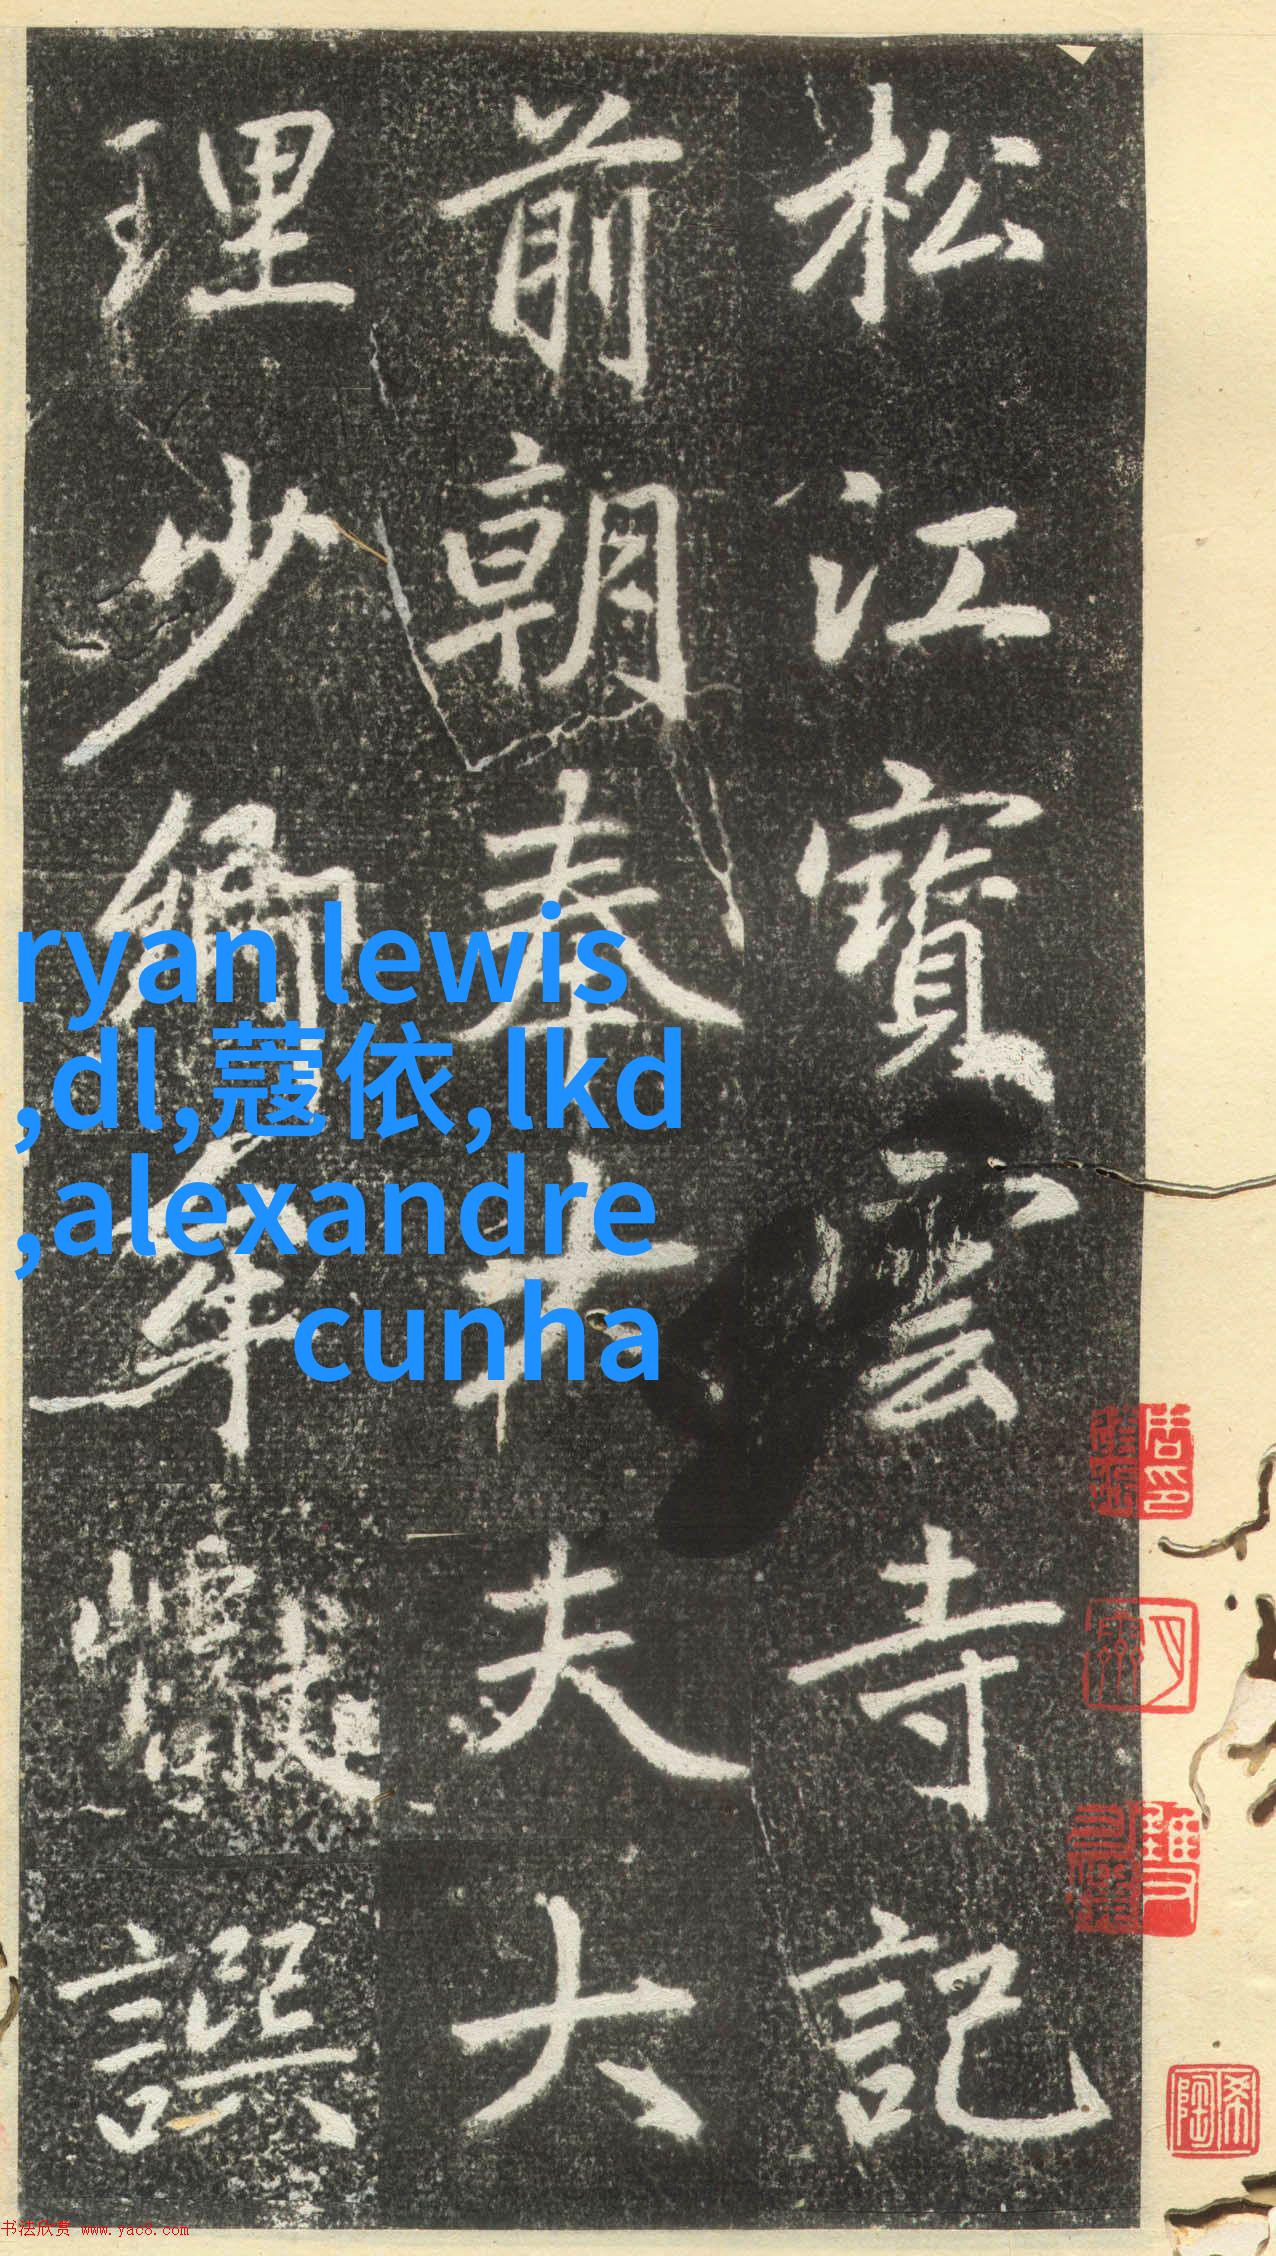 松江寶雲寺記
前朝奉大夫大
理少卿牟巘譔
ryan lewis
,dl,蔻依,lkd
,alexandre
cunha
希陶
书法欣赏 www.yac8.com